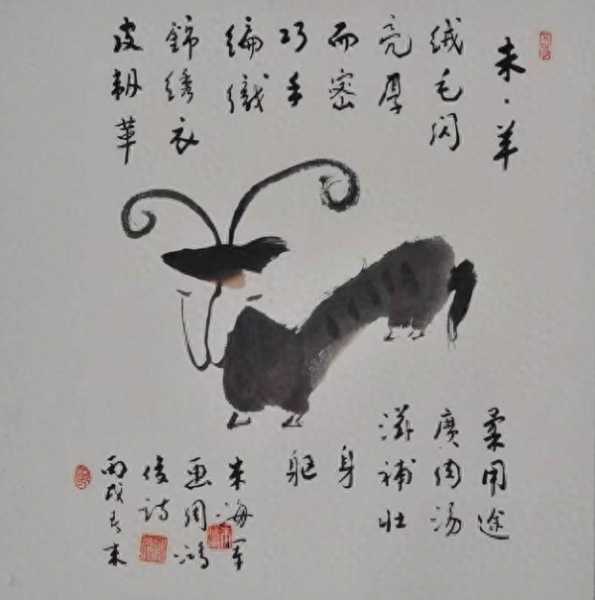 未·羊
绒毛闪
亮厚
而密
巧手
編織
錦绣衣
皮韧革
柔用途
廣肉汤
滋補壮
身
躯
朱海军
画周鸿
俊诗
丙戌春末